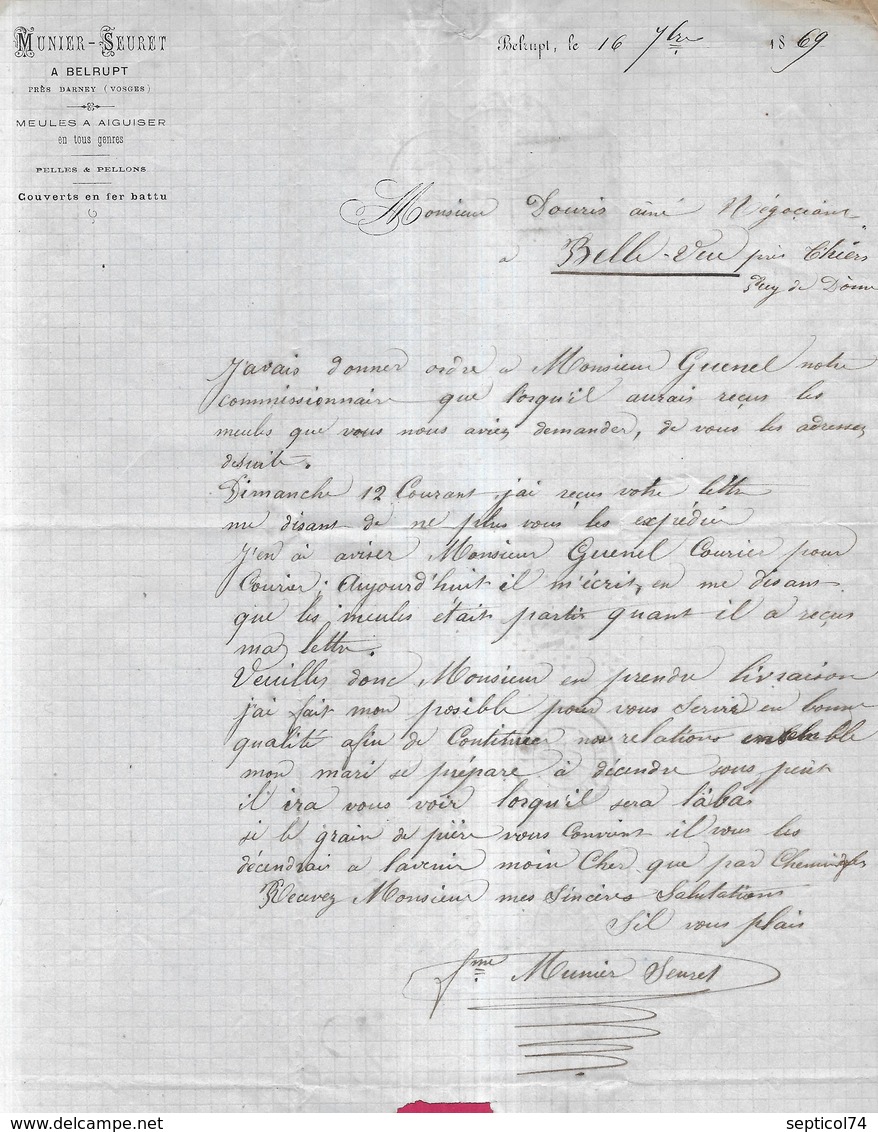 MUNIER-SEURET
A BELRUPT
PRÈS DARNEY (VOSGES)
MEULES A AIGUISER
en tous genres
PELLES & PELLONS
Couverts en fer battu
Belrupt, le 16 7bre 1869
Monsieur Douris ainé Négoçiant
a Belle-Vue près Thiérs
Puy de Dôme
J'avais donner ordre a Monsieur Guenel notre
commissionnaire que lorsqu'il aurais reçus les
meules que vous nous aviez demander, de vous les adresser
desuite.
Dimanche 12 Courant j'ai reçus votre lettre
me disant de ne plus vous les expédier
J'en a aviser Monsieur Guenel Courier pour
Courier; Aujourd'huit il m'écrit, en me disant
que les meules était partir quant il a reçus
ma lettre.
Veuilles donc Monsieur en prendre livraison
j'ai fait mon posible pour vous servir en bonne
qualité afin de Continuer nos relations ensemble
mon mari se prépare à décendre sous peut
il ira vous voir lorqu'il sera labas
si le grain de pière vous Convient il vous les
décendrait a l'avenir moin Cher que par Chemin de fer
Recevez Monsieur mes Sincères Salutations
Sil vous plais
fme Munier Seuret
www.delcampe.net
septicol74